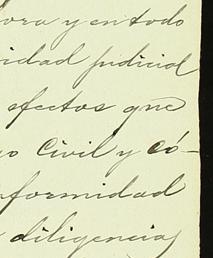 ora y en todo
idad judicial
efectos que
o Civil y có-
formidad
diligencias